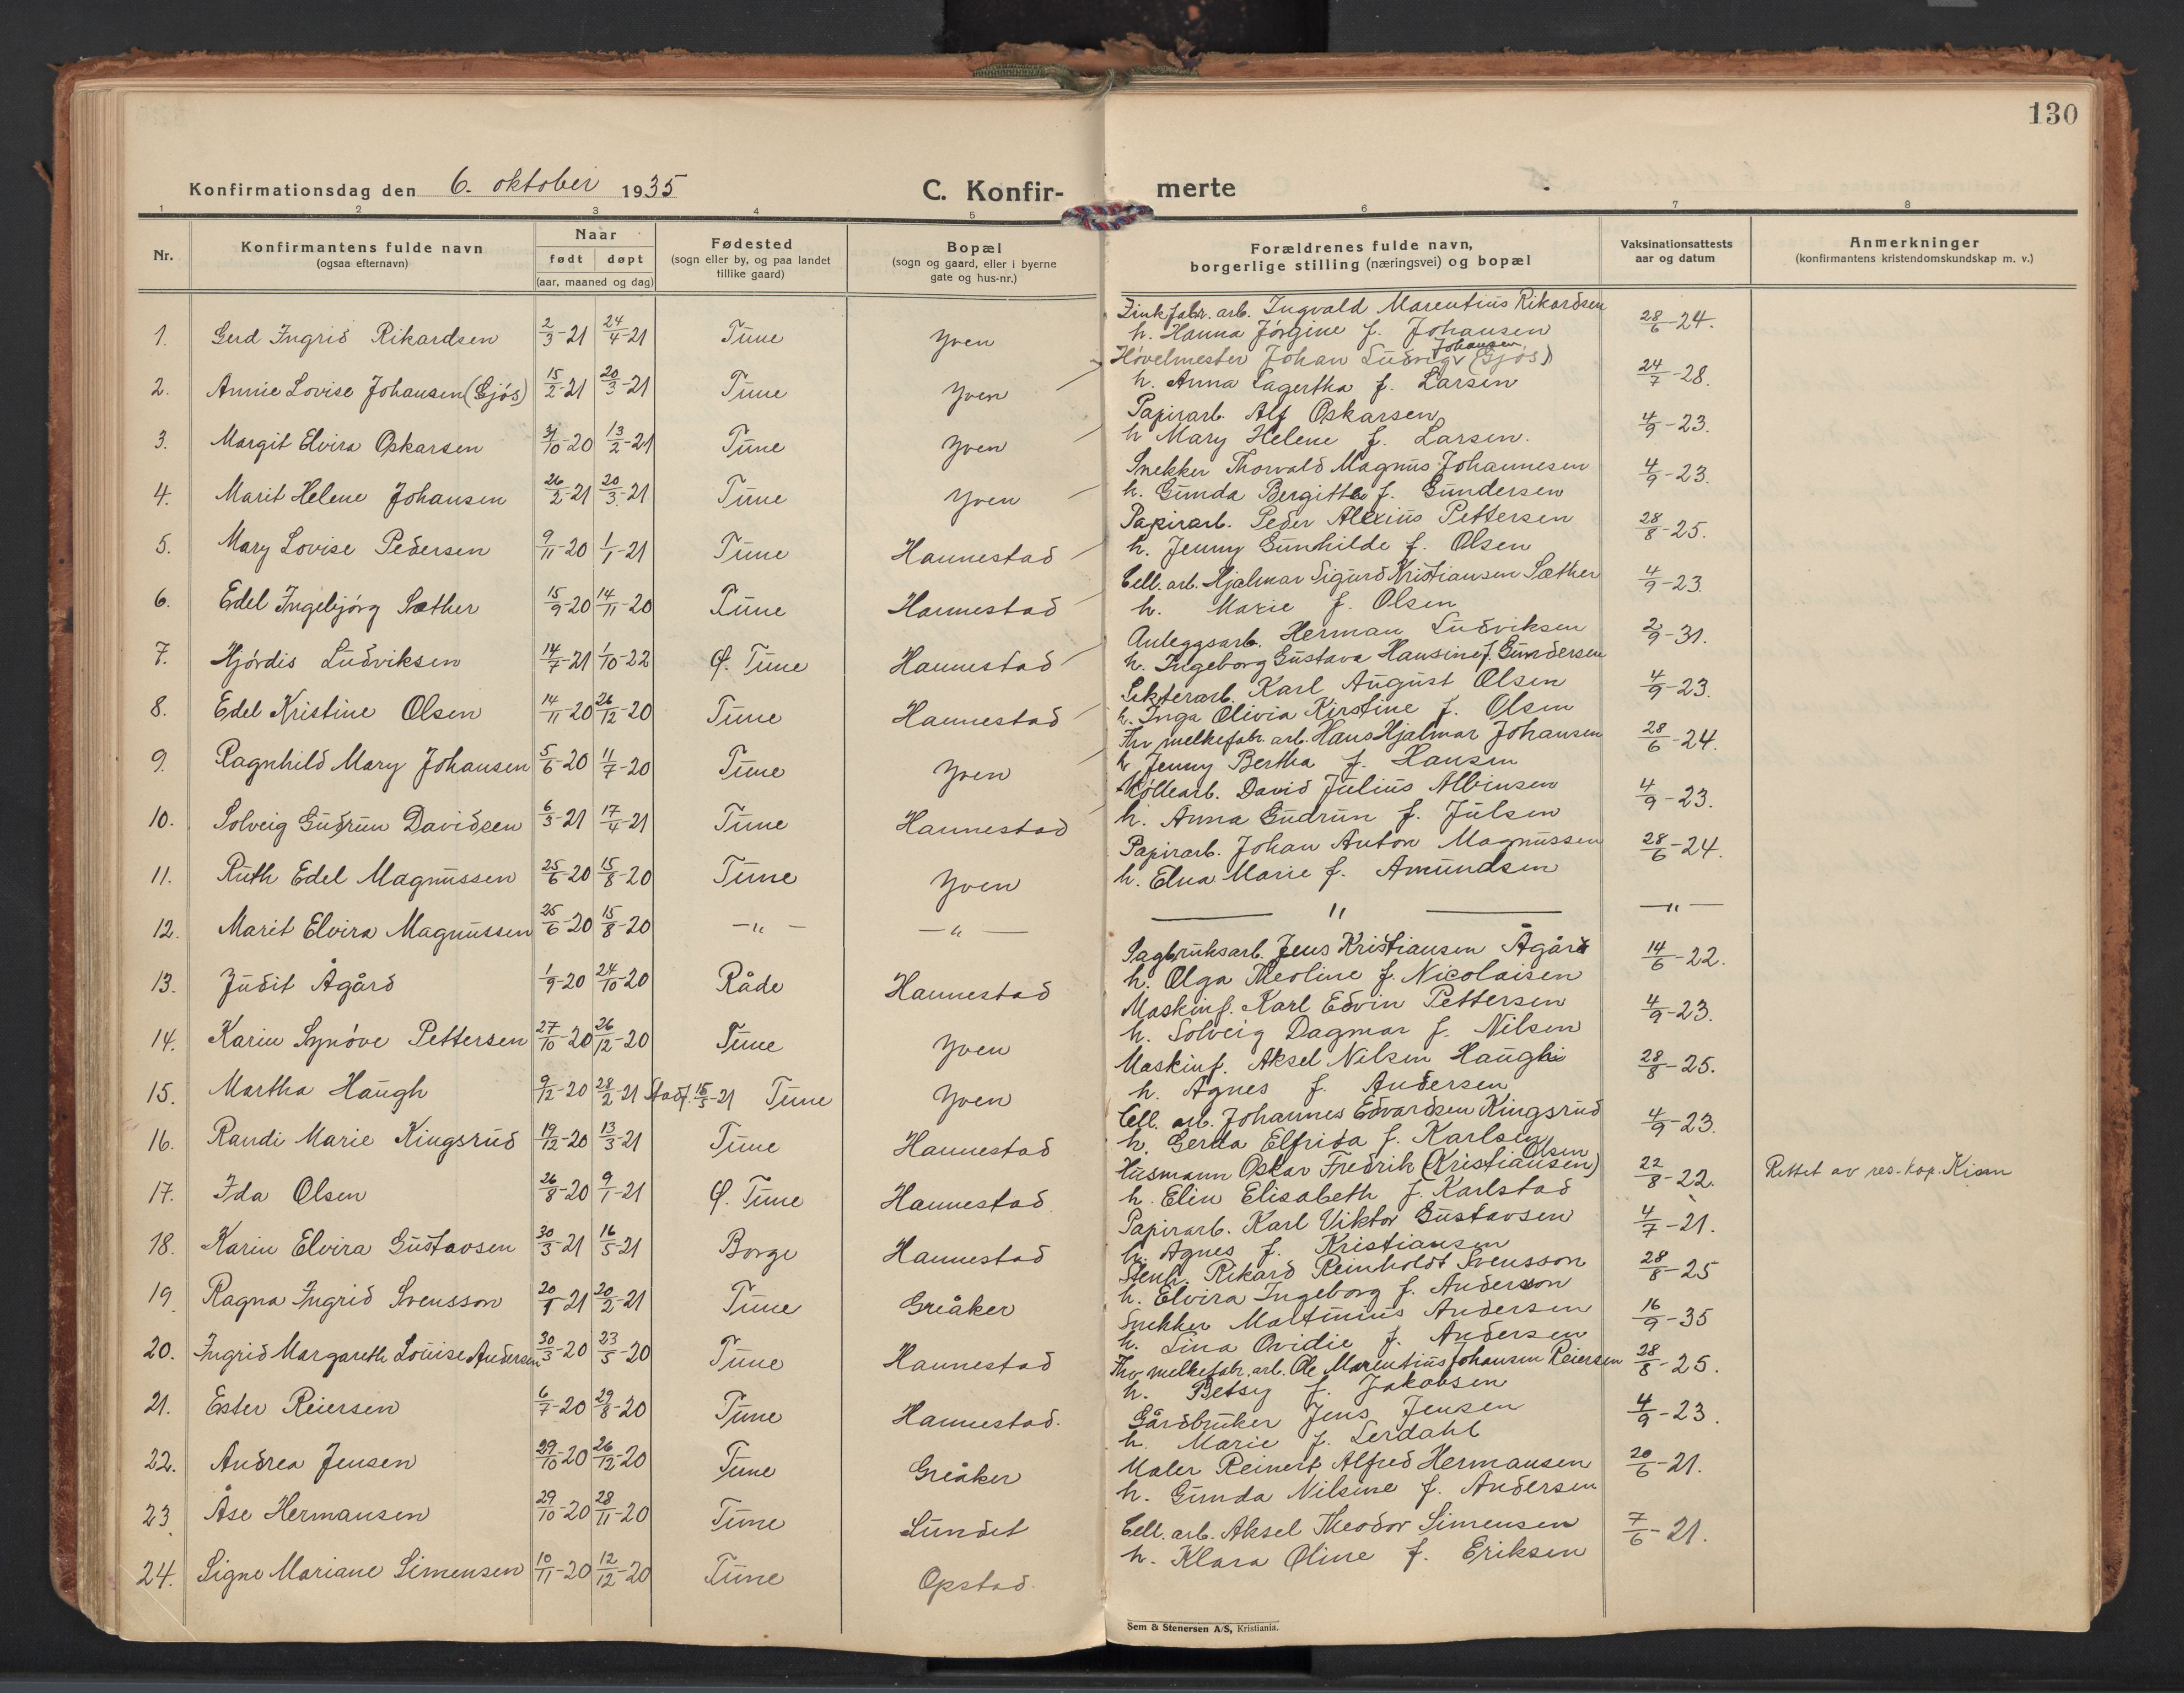 130
Konfirmationsdag den 6. oktober 1935
C. Konfir-
merte
1 2 3 4 5 6 7 8
Nr.
Konfirmantens fulde navn
(ogsaa efternavn)
Naar
født døpt
(aar, maaned og dag)
Fødested
(sogn eller by, og paa landet
tillike gaard)
Bopæl
(sogn og gaard, eller i byerne
gate og hus-nr.)
Forældrenes fulde navn,
borgerlige stilling (næringsvei) og bopæl
Vaksinationsattests
aar og datum
Anmerkninger
(konfirmantens kristendomskundskap m. v.)
1. Gerd Ingrid Rikardsen 2/3-21 24/4-21 Tune Yven
Zinkfabr. arb. Ingvald Marentius Rikardsen
h. Hanna Jørgine f. Johansen
28/6-24.
2. Annie Lovise Johansen (Gjøs) 15/2-21 20/3-21 Tune Yven
Høvelmester Johan Ludvig Johansen (Gjøs)
h. Anna Lagertha f. Larsen
24/7-28.
3. Margit Elvira Oskarsen 31/10-20 13/2-21 Tune Yven
Papirarb. Alf Oskarsen
h Mary Helene f. Larsen.
4/9-23.
4. Marit Helene Johansen 26/2-21 20/3-21 Tune Yven
Snekker Thorvald Magnus Johannesen
h. Gunda Bergitte f. Gundersen
4/9-23.
5. Mary Lovise Pedersen 9/11-20 1/1-21 Tune Hannestad
Papirarb. Peder Alexius Pettersen
h. Jenny Gunhilde f. Olsen
28/8-25.
6. Edel Ingebjørg Sæther 15/9-20 14/11-20 Tune Hannestad
Cell. arb. Hjalmar Sigurd Kristiansen Sæther
h. Marie f. Olsen
4/9-23.
7. Hjørdis Ludviksen 14/7-21 1/10-22 Ø. Tune Hannestad
Anleggsarb. Herman Ludviksen
h. Ingeborg Gustava Hansine f. Gundersen
2/9-31.
8. Edel Kristine Olsen 14/11-20 26/12-20 Tune Hannestad
Lekterarb. Karl August Olsen
h. Inga Olivia Kirstine f. Olsen
4/9-23.
9. Ragnhild Mary Johansen 5/6-20 11/7-20 Tune Yven
Thv melkefabr. arb. Hans Hjalmar Johansen
h Jenny Bertha f. Hansen
28/6-24.
10. Solveig Gudrun Davidsen 6/3-21 17/4-21 Tune Hannestad
Møllearb. David Julius Albinsen
h. Anna Gudrun f. Julsen
4/9-23.
11. Ruth Edel Magnussen 25/6-20 15/8-20 Tune Yven
Papirarb. Johan Anton Magnussen
h. Elna Marie f. Amundsen
28/6-24.
12. Marit Elvira Magnussen 25/6-20 15/8-20 -"- -"-
-"- -"-
13. Judit Ågård 1/9-20 24/10-20 Råde Hannestad
Sagbruksarb. Jens Kristiansen Ågård
h. Olga Theoline f. Nicolaisen
14/6-22.
14. Karin Synøve Pettersen 27/10-20 26/12-20 Tune Yven
Maskinf. Karl Edvin Pettersen
h. Solveig Dagmar f. Nilsen
4/9-23.
15. Martha Haugh 9/12-20 28/2-21 Stadf. 15/5-21 Tune Yven
Maskinf. Aksel Nilsen Haugh
h. Agnes f. Andersen
28/8-25.
16. Randi Marie Kingsrud 19/12-20 13/3-21 Tune Hannestad
Cell. arb. Johannes Edvardsen Kingsrud
h. Gerda Elfrida f. Karlsen
4/9-23.
17. Ida Olsen 26/8-20 9/1-21 Ø. Tune Hannestad.
Husmann Oskar Fredrik (Kristiansen) Olsen
h. Elin Elisabeth f. Karlstad
22/8-22.
Rettet av res. kap. Kiøn
18. Karin Elvira Gustavsen 30/3-21 16/5-21 Borge Hannestad
Papirarb. Karl Viktor Gustavsen
h. Agnes f. Kristiansen
4/7-21.
19. Ragna Ingrid Svensson 20/1-21 20/2-21 Tune Greåker
Stenh. Rikard Reinholdt Svensson
h. Elvira Ingeborg f. Andersson
28/8-25
20. Ingrid Margareth Louise Andersen 30/3-20 23/5-20 Tune Hannestad
Snekker Martinius Andersen
h. Lina Ovidie f. Andersen
16/9-35
21. Ester Reiersen 6/7-20 29/8-20 Tune Hannestad.
Thv melkefabr. arb. Ole Marentius Johansen Reiersen
h. Betsy f. Jakobsen
28/8-25.
22. Andrea Jensen 29/10-20 26/12-20 Tune Greåker
Gårdbruker Jens Jensen
h. Marie f. Lerdahl
4/9-23.
23. Åse Hermansen 29/10-20 28/11-20 Tune Sundet
Maler Reinert Alfred Hermansen
h. Gunda Nilsine f. Andersen
20/6-21.
24. Signe Mariane Simensen 10/11-20 12/12-20 Tune Opstad.
Cell. arb. Aksel Theodor Simensen
h. Klara Oline f. Eriksen
7/6-21.
Sem & Stenersen A/S, Kristiania.